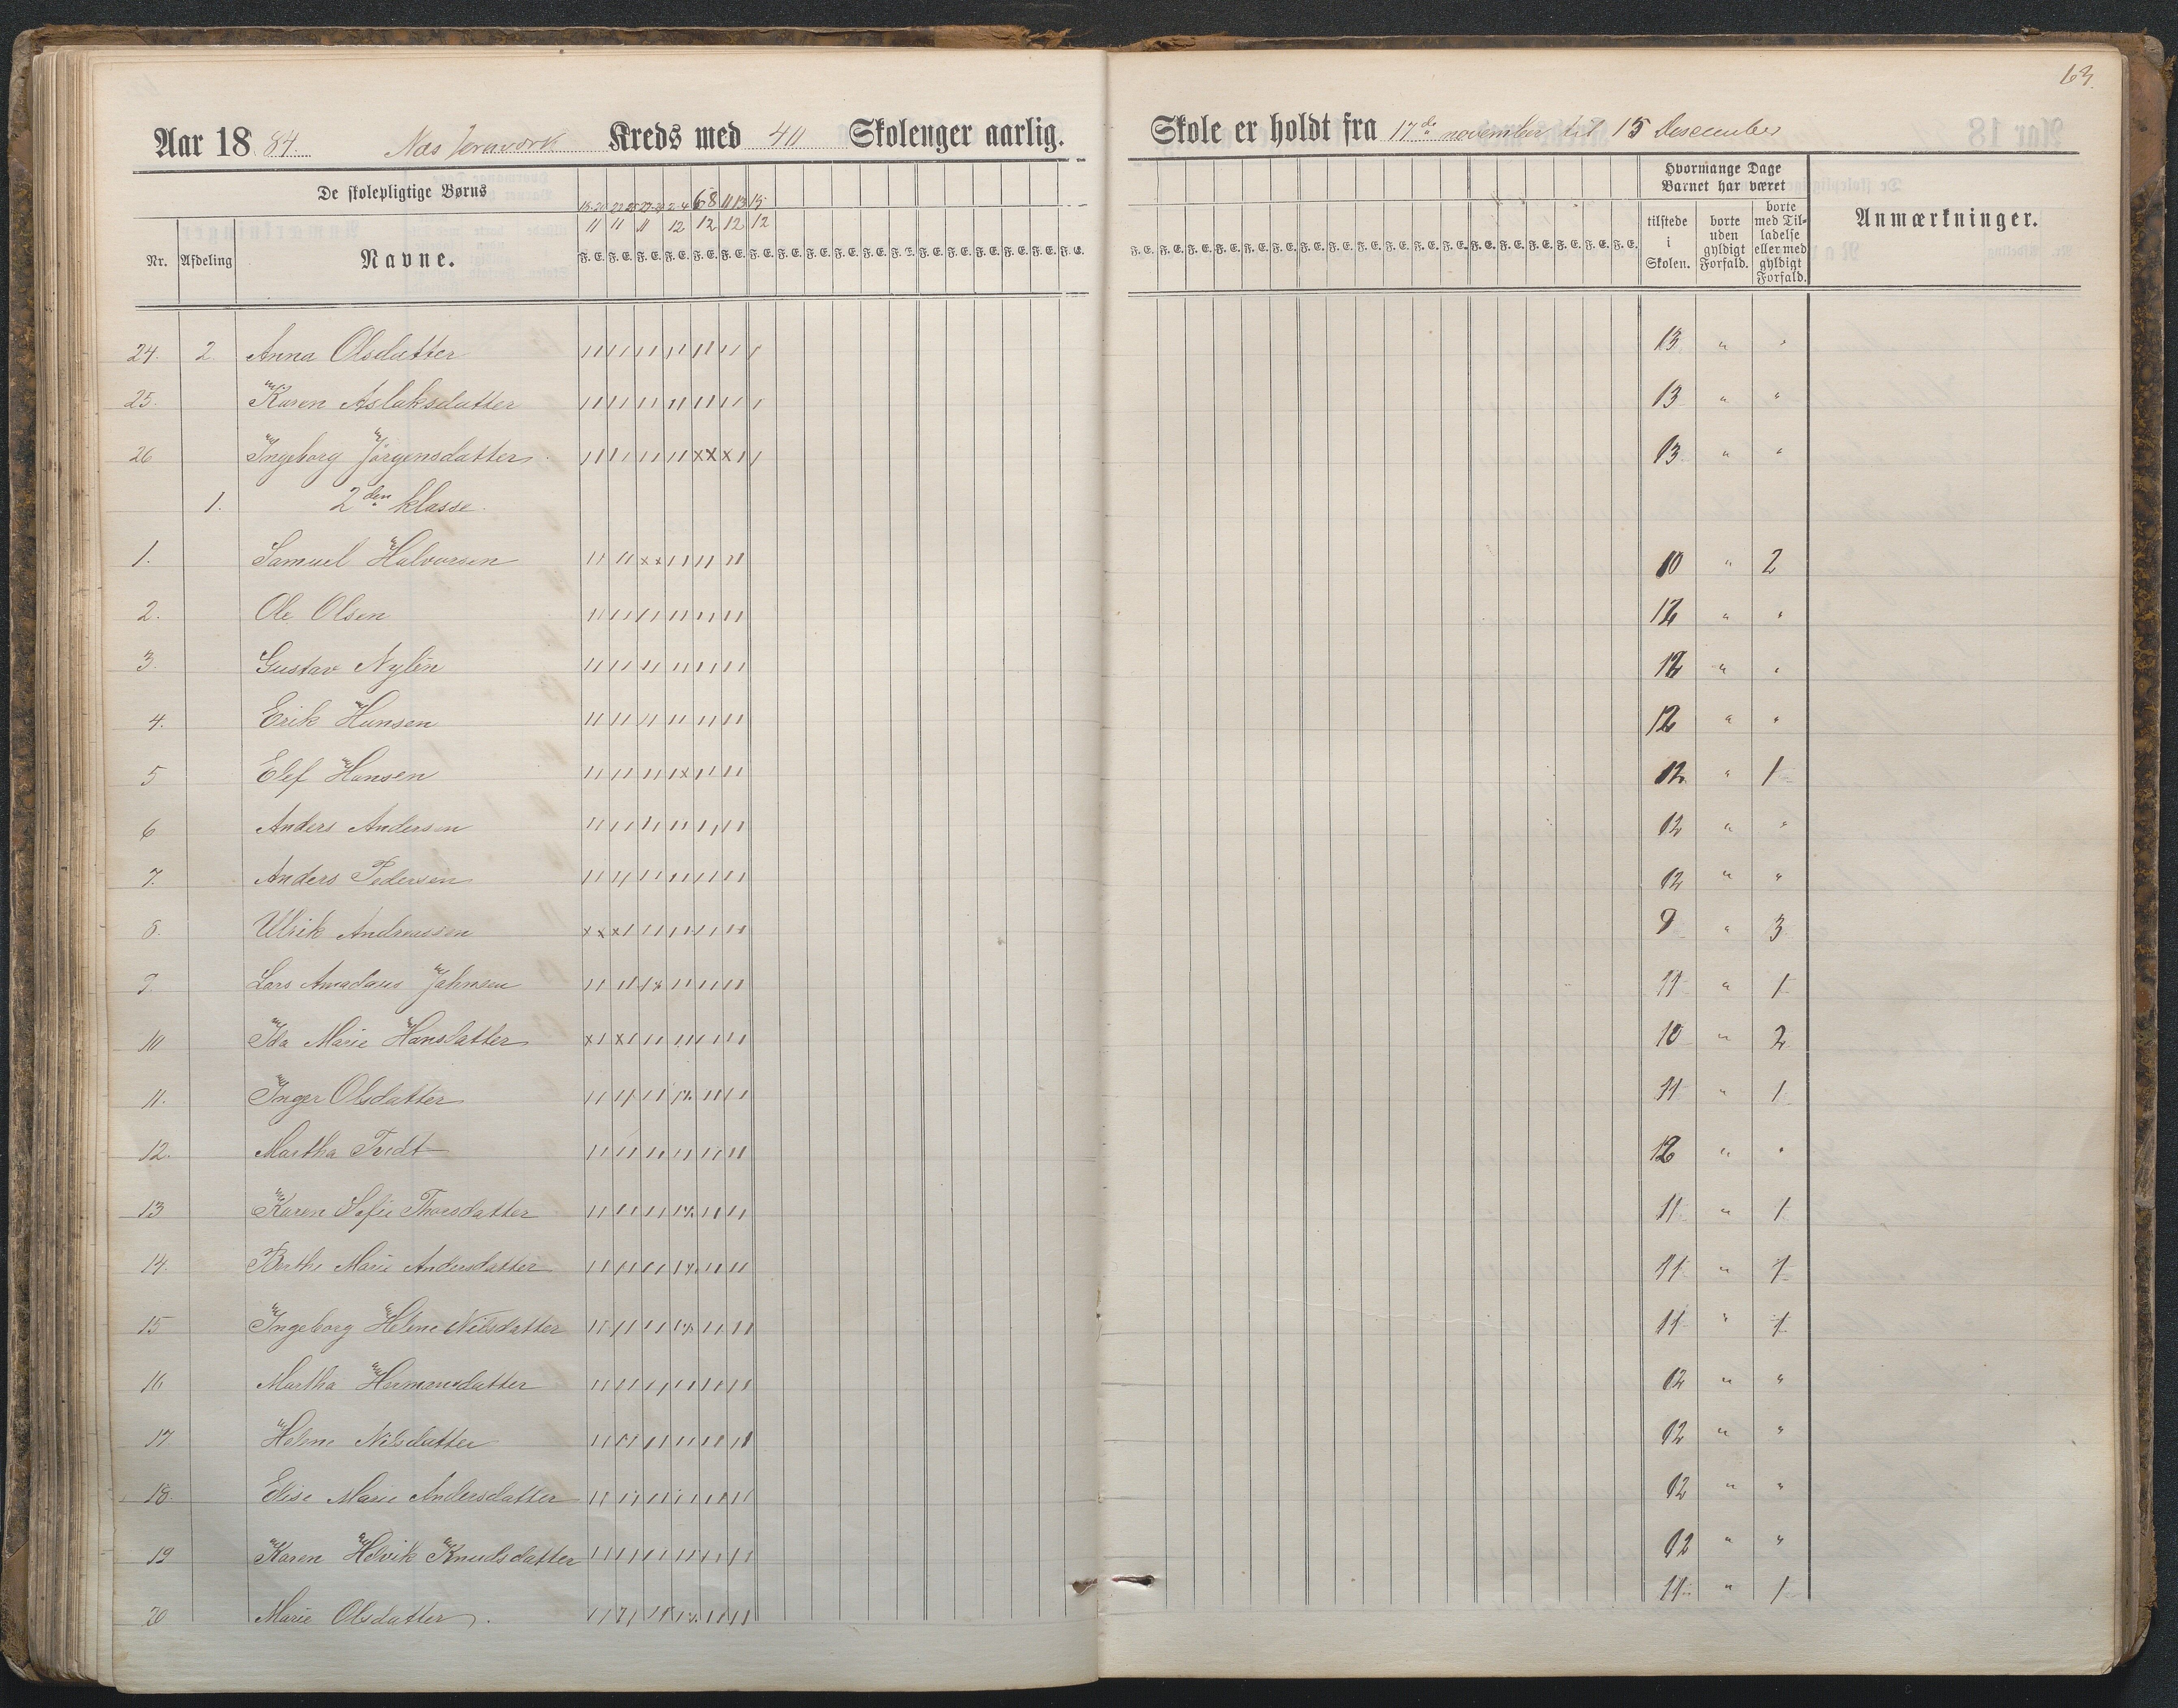 63.
Aar 1884. Næs Jernværk Kreds med 40 Skolenger aarlig. Skole er holdt fra 17de november til 15 Desember
De skolepligtige Børns
Nr. Afdeling Navne.
Hvormange Dage Barnet har været
tilstede i Skolen. borte uden gyldigt Forfald. borte med Tilladelse eller med gyldigt Forfald.
Anmærkninger.
11 11 11 12 12 12 12
F. E. F. E. F. E. F. E. F. E. F. E. F. E. F. E. F. E. F. E. F. E.
24. 2. Anna Olsdatter 13 " "
25. Karen Aslaksdatter 13 " "
26 Ingeborg Jørgensdatter. 13 " "
1. 2den klasse.
1. Samuel Halvorsen 10 " 2
2. Ole Olsen 12 " "
3. Gustav Nylén 12 " "
4. Erik Hansen 12 " "
5 Elef Hansen 12 " 1
6 Anders Andersen 12 " "
7. Anders Pedersen 12 " "
8. Ulrik Andreassen 9 " 3
9. Lars Amadæus Jahnsen 11 " 1
10 Ida Marie Hansdatter 10 " 2
11. Inger Olsdatter 11 " 1
12. Martha Tvedt 12 " "
13 Karen Sofie Thorsdatter 11 " 1
14. Berthe Marie Andersdatter 11 " 1
15 Ingeborg Helene Nilsdatter 11 " 1
16 Martha Hermansdatter 12 " "
17 Helene Nilsdatter 12 " "
18. Elise Marie Andersdatter 12 " "
19 Karen Helvik Knudsdatter 12 " "
20 Marie Olsdatter. 11 " 1